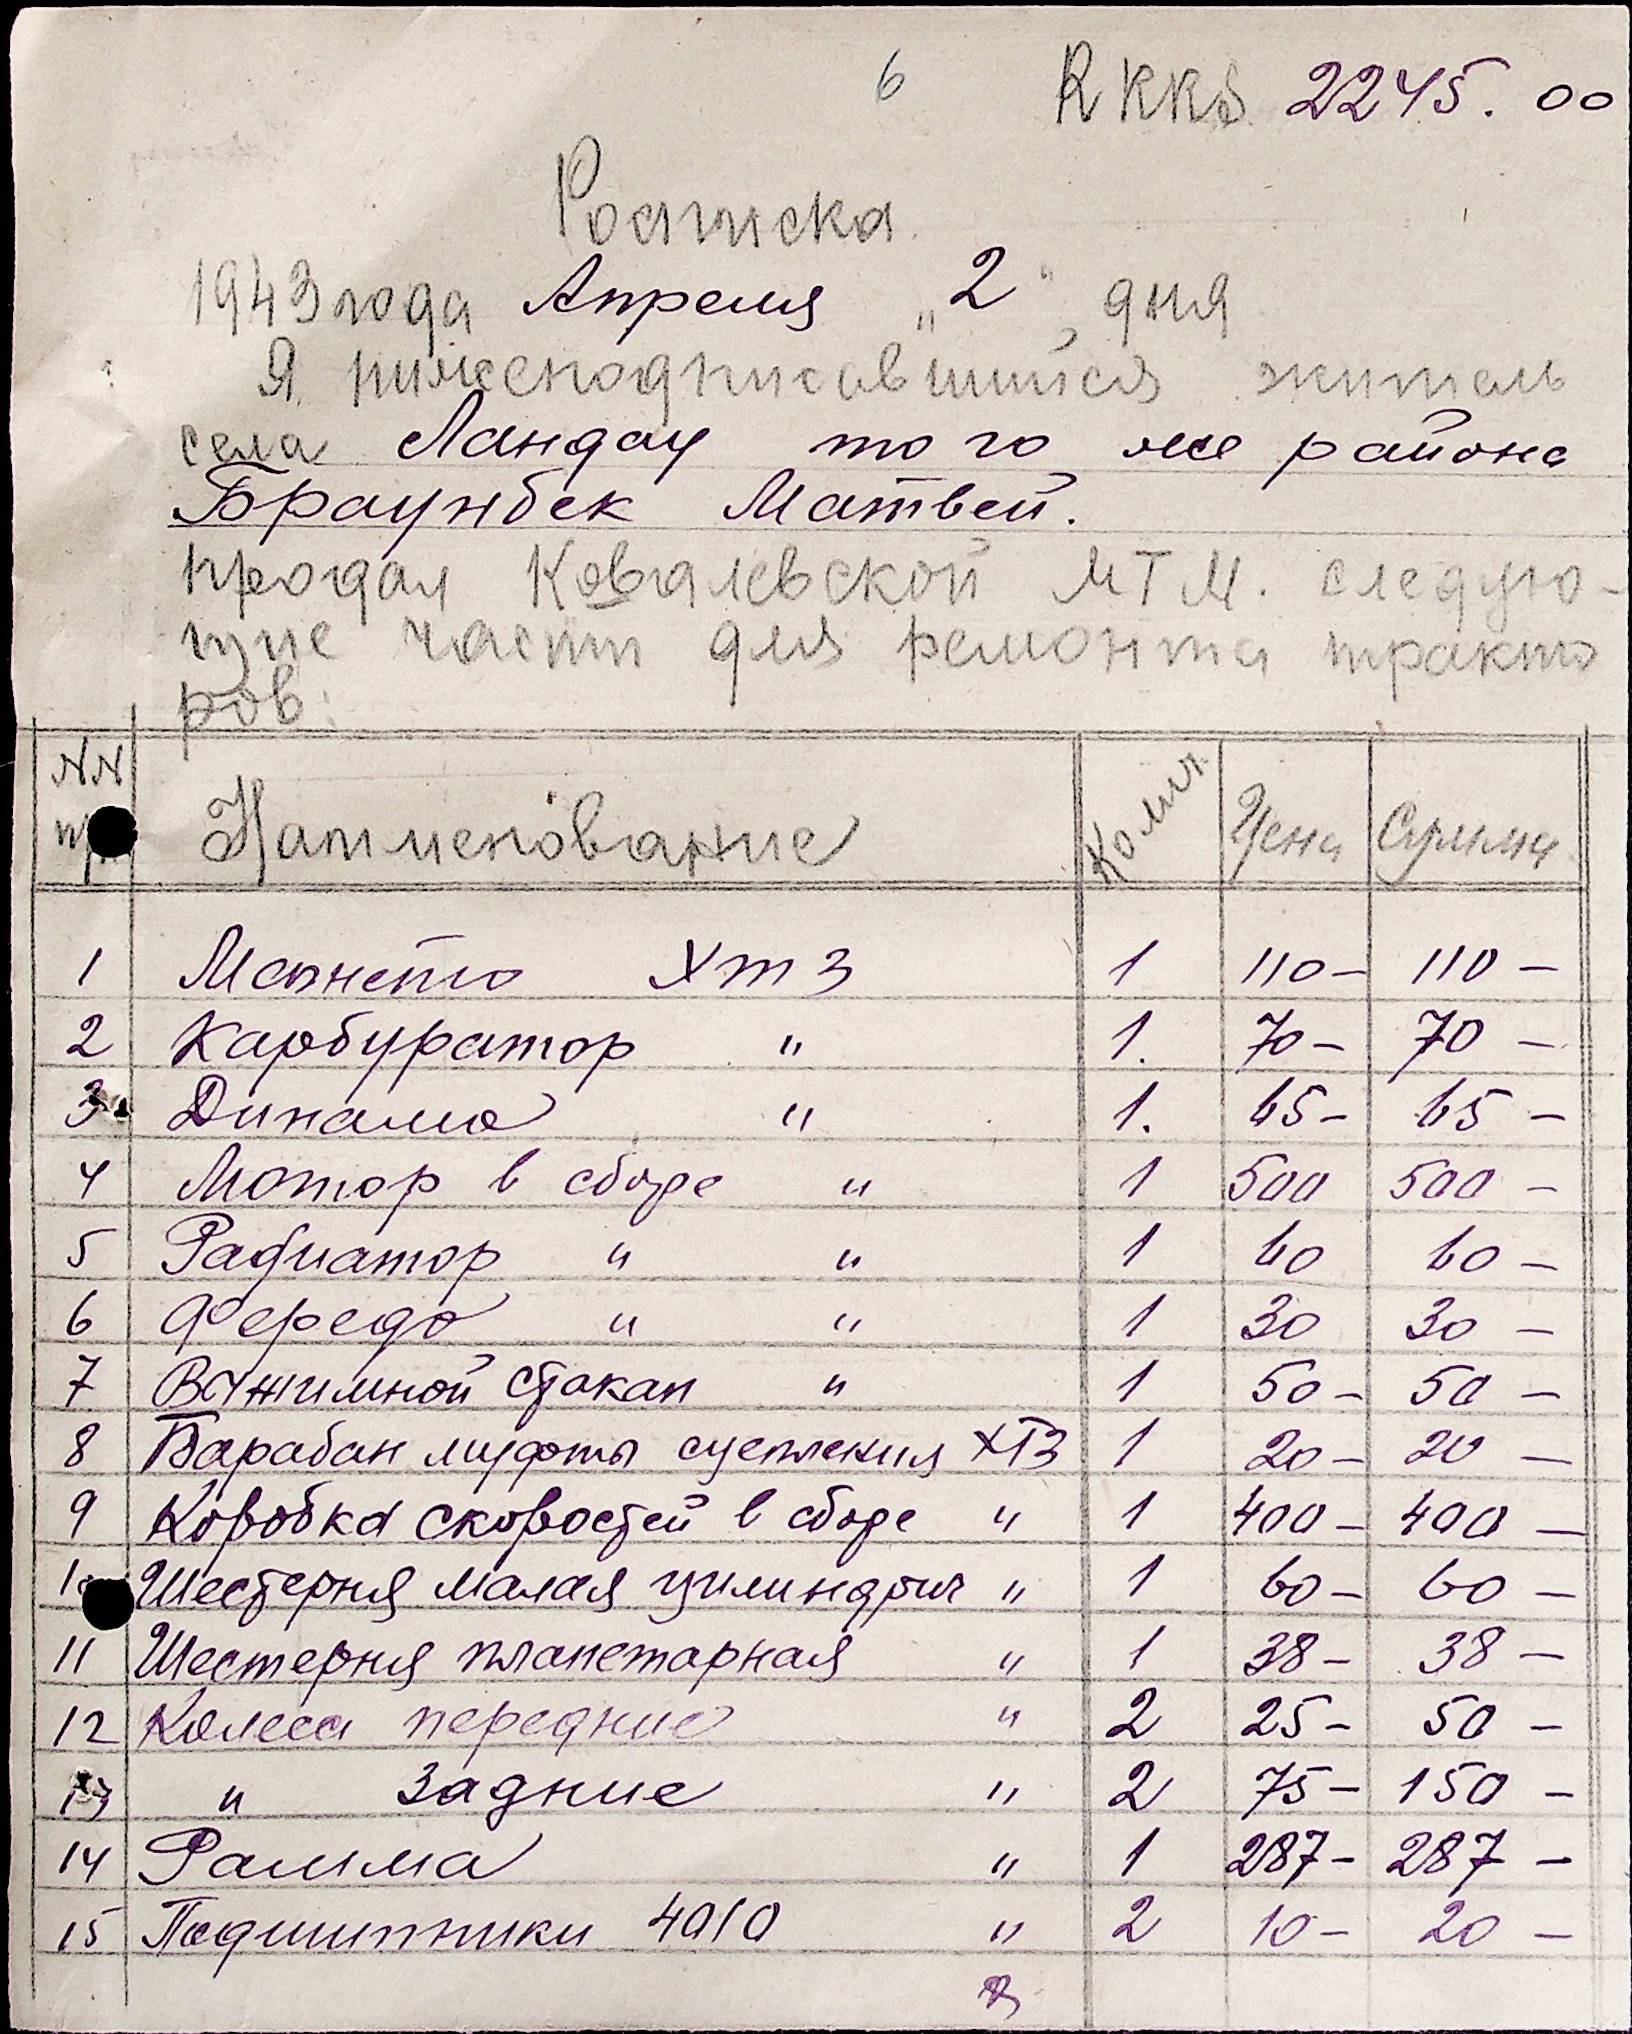 6 RKKS 2245.00
Росписка
1943 года Апреля „2“ дня
Я нижеподписавшийся житель
села Ландау того же района
Браунбек Матвей.
продал Ковалевской МТМ. следую-
щие части для ремонта тракто
ров:
NN Наименование Колич. Цена Сумма
1 Магнето ХТЗ 1 110- 110-
2 Карбуратор " 1. 70- 70-
3 Динамо " 1. 65- 65-
4 Мотор в сборе " 1 500 500-
5 Радиатор " " 1 60 60-
6 Фередо " " 1 30 30-
7 Вджимной стакан " 1 50- 50-
8 Барабан муфты сцепления ХТЗ 1 20- 20-
9 Коробка скоростей в сборе " 1 400- 400-
10 Шестерня малая цилиндрич " 1 60- 60-
11 Шестерня планетарная " 1 38- 38-
12 Колеса передние " 2 25- 50-
13 " Задние " 2 75- 150-
14 Рамма " 1 287- 287-
15 Подшипники 4010 " 2 10- 20-